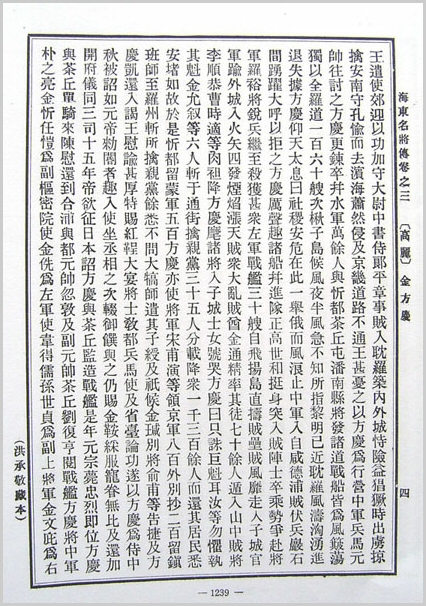 海東名將傳卷之三 〔高麗〕 金方慶 四
王遣使郊迎以功加守大尉中書侍郞平章事賊入耽羅築內外城恃險益猖獗時出虜掠
擒安南守孔愉而去濱海蕭然侵及京畿道路不通王甚憂之以方慶爲行營中軍兵馬元
帥往討之方慶更鍊卒幷水軍萬餘人與忻都茶丘屯潘南縣將發諸道戰船皆爲風簸蕩
獨以全羅道一百六十艘次楸子島候風夜半風急不知所指黎明已近耽羅風濤洶湧進
退失據方慶仰天太息曰社稷安危在此一舉俄而風浪止中軍入自咸德浦賊伏兵巖石
間踴躍大呼以拒之方慶厲聲趣諸船幷進隊正高世和挺身突入賊陣士卒乘勢爭赴將
軍羅裕將銳兵繼至殺獲甚衆左軍戰艦三十艘自飛揚島直擣賊壘賊風靡走入子城官
軍踰外城入火矢四發煙焰漲天賊衆大亂賊酋金通精率其徒七十餘人遁入山中賊將
李順恭曹時適等肉袒降方慶麾諸將入子城士女號哭方慶曰只誅巨魁耳汝等勿懼執
其魁金允叙等六人斬于通街擒親黨三十五人分載降衆一千三百餘人而還其居民悉
安堵如故於是忻都留蒙軍五百方慶亦使將軍宋甫演等領京軍八百外別抄二百留鎭
班師至羅州斬所擒親黨餘悉不問大犒師遣其子綬及祇候金瑊別將兪甫等告捷及方
慶凱還入謁王慰諭甚厚特賜紅鞓大宴將士敎都兵馬使及省臺論功遂以方慶爲侍中
秋被詔如元帝勑閽者趣入使坐丞相之次輟御饌與之仍賜金鞍綵服龍眷無比及還加
開府儀同三司十五年帝欲征日本詔方慶與茶丘監造戰艦是年元宗薨忠烈卽位方慶
與茶丘單騎來陳慰還到合浦與都元帥忽敦及副元帥茶丘劉復亨閱戰艦方慶將中軍
朴之亮金忻任愷爲副樞密院使金侁爲左軍使韋得儒孫世貞爲副上將軍金文庇爲右
(洪承敬藏本)
— 1239 —